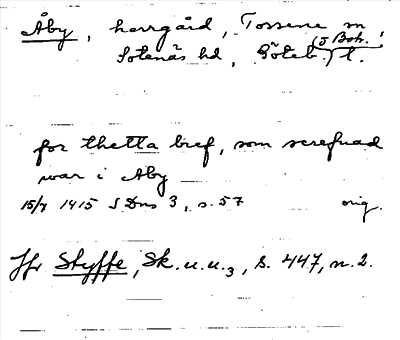 Åby, herrgård, Tossene sn
Sotenäs hd, Göteb. (I Boh.) l.
for thetta bref, som screfuad
war i Aby
15/7 1415 SDns 3, s. 57 orig.
Jfr Styffe, Sk.u.u.3, s. 447, n. 2.